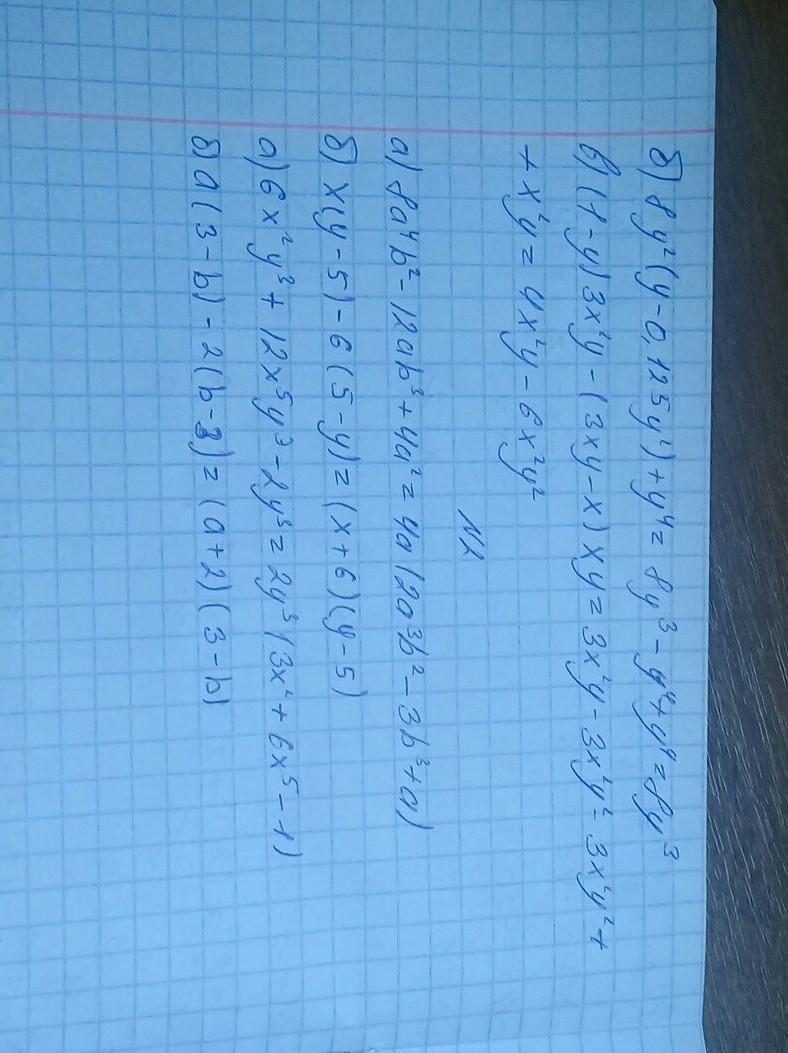 б) 8y²(y-0,125y²)+y⁴= 8y³-y⁴+y⁴=8y³
в) (1-y)3x²y-(3xy-x)xy=3x²y-3x²y²-3x²y²+
+x²y=4x²y-6x²y²
N2
а) 8a⁴b²-12ab³+4a²=4a(2a³b²-3b³+a)
б) x(y-5)-6(5-y)=(x+6)(y-5)
а) 6x²y³+12x⁵y³-2y³=2y³(3x²+6x⁵-1)
б) a(3-b)-2(b-3)=(a+2)(3-b)